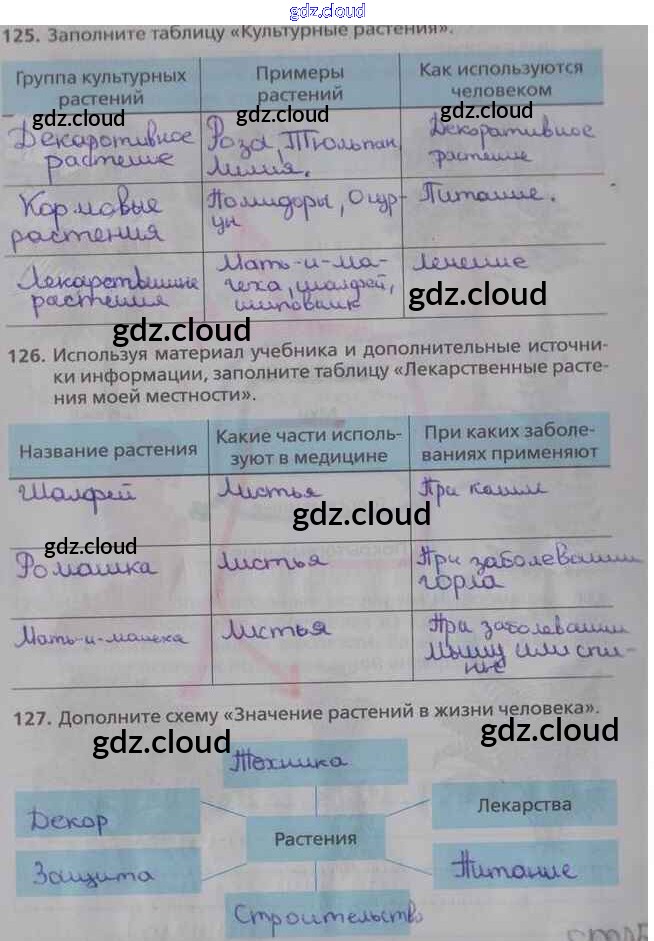 gdz.cloud
125. Заполните таблицу «Культурные растения».
Группа культурных растений
Примеры растений
Как используются человеком
gdz.cloud
gdz.cloud
gdz.cloud
Декаротивное
растение
Роза, Тюльпан,
Лилия.
Декоративное
растение
Кормовые
растения
Помидоры, Огур-
цы
Питание.
Лекарственные
растения
Мать-и-ма-
чеха, шалфей,
шиповник
Лечение
gdz.cloud
gdz.cloud
126. Используя материал учебника и дополнительные источни-
ки информации, заполните таблицу «Лекарственные расте-
ния моей местности».
Название растения
Какие части исполь-
зуют в медицине
При каких заболе-
ваниях применяют
Шалфей
Листья
При кашле
gdz.cloud
gdz.cloud
Ромашка
Листья
При заболевании
горла
Мать-и-мачеха
Листья
При заболевании
127. Дополните схему «Значение растений в жизни человека».
gdz.cloud
gdz.cloud
Техника
Декор
Лекарства
Растения
Защита
Питание
Строительство